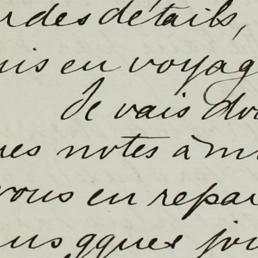 rdes détails,
uis en voyag
Je vais do
es notes à m
vous en repar
ques jou